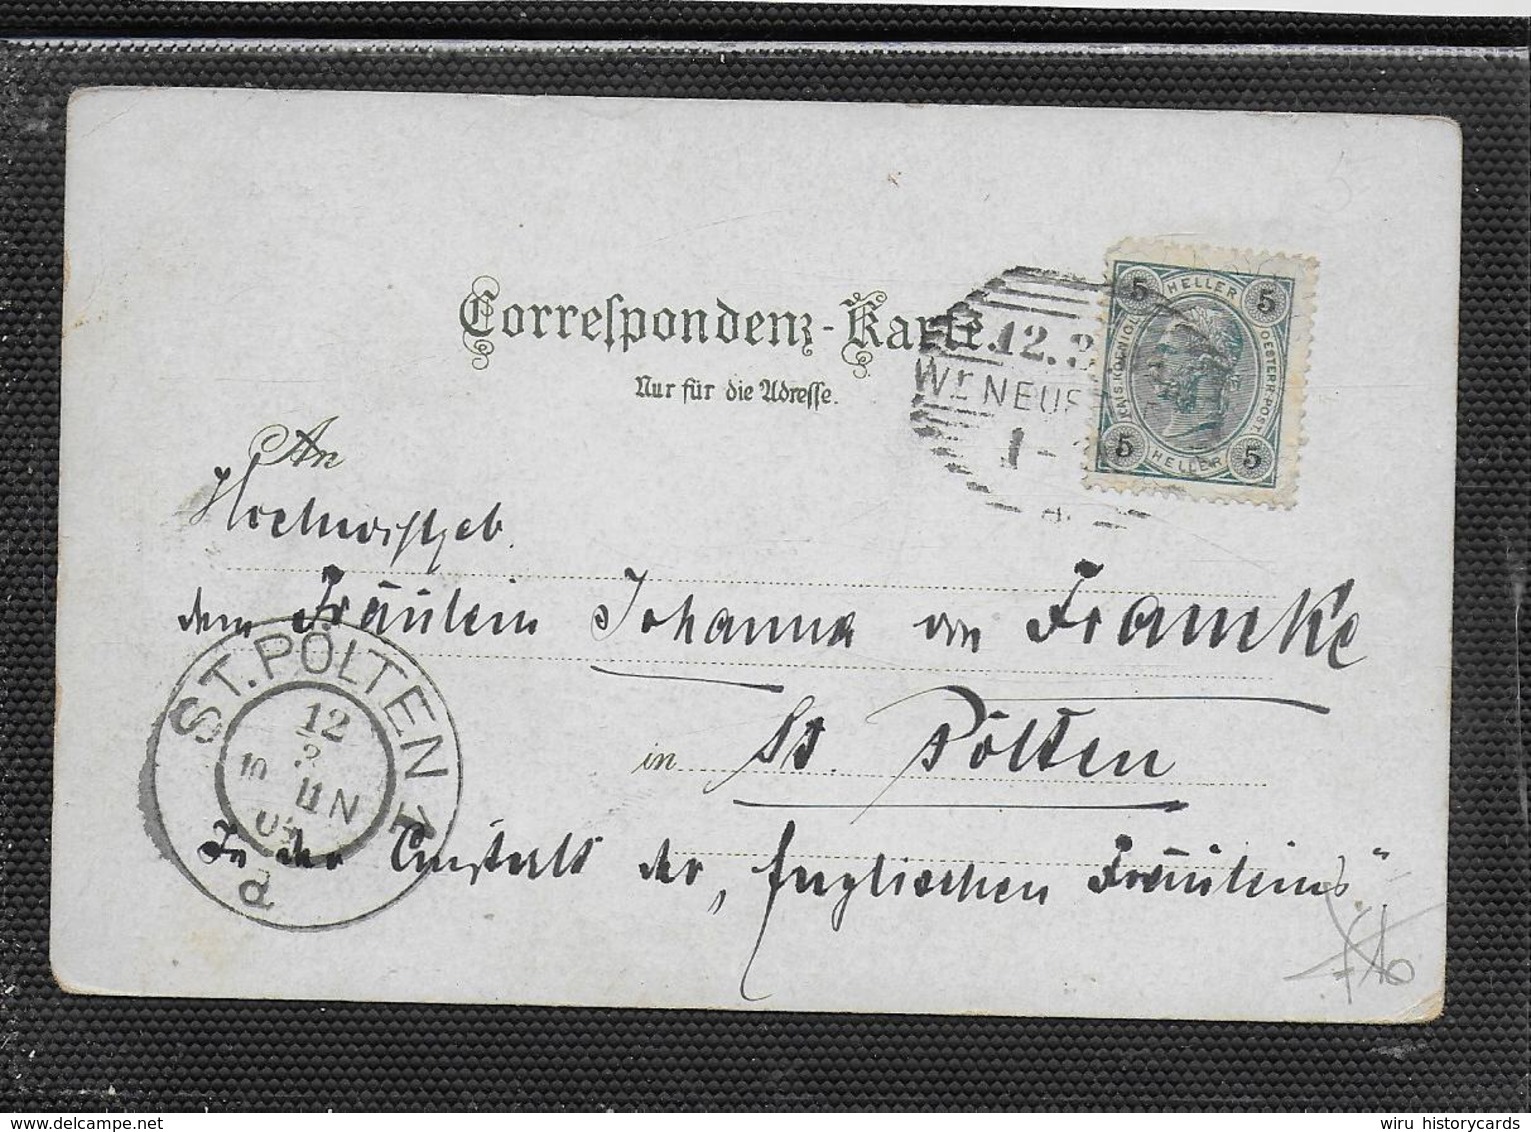 Correspondenz-Karte.
Nur für die Adresse.
12.
Wr. NEUS
1 -
5 HELLER 5
KAIS. KOENIGL.
OESTERR. POST.
5 HELLER 5
An
Hochwohlgeb.
dem Fräulein Johanna von Francke
ST. PÖLTEN 1
12
3
10 11 N
d
in St. Pölten
In der Anstalt der „Englischen Fräuleins."
delcampe.net
wiru historycards